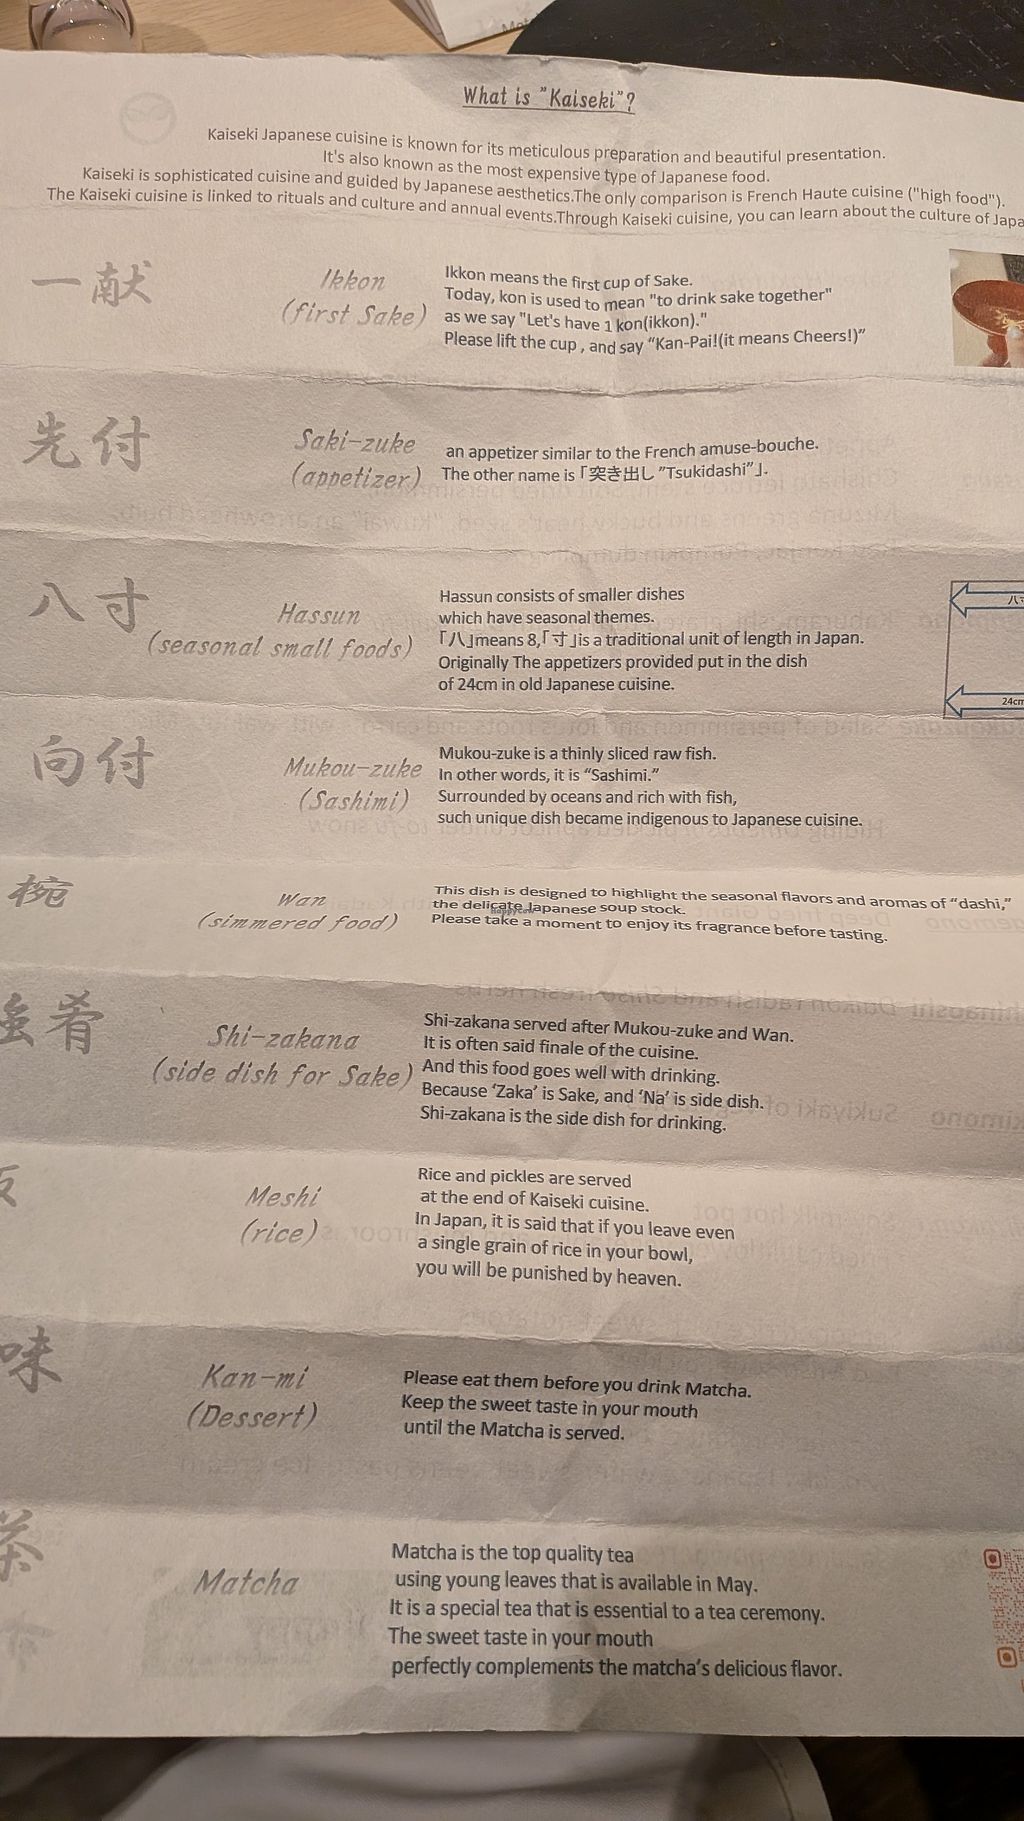 What is "Kaiseki"?
Kaiseki Japanese cuisine is known for its meticulous preparation and beautiful presentation.
It's also known as the most expensive type of Japanese food.
Kaiseki is sophisticated cuisine and guided by Japanese aesthetics.The only comparison is French Haute cuisine ("high food").
The Kaiseki cuisine is linked to rituals and culture and annual events.Through Kaiseki cuisine, you can learn about the culture of Japa
一献
Ikkon
(first Sake)
Ikkon means the first cup of Sake.
Today, kon is used to mean "to drink sake together"
as we say "Let's have 1 kon(ikkon)."
Please lift the cup , and say “Kan-Pai!(it means Cheers!)”
先付
Saki-zuke
(appetizer)
an appetizer similar to the French amuse-bouche.
The other name is「突き出し ”Tsukidashi”」.
八寸
Hassun
(seasonal small foods)
Hassun consists of smaller dishes
which have seasonal themes.
「八」means 8,「寸」is a traditional unit of length in Japan.
Originally The appetizers provided put in the dish
of 24cm in old Japanese cuisine.
八
24cm
向付
Mukou-zuke
(Sashimi)
Mukou-zuke is a thinly sliced raw fish.
In other words, it is “Sashimi.”
Surrounded by oceans and rich with fish,
such unique dish became indigenous to Japanese cuisine.
椀
Wan
(simmered food)
This dish is designed to highlight the seasonal flavors and aromas of “dashi,”
the delicate Japanese soup stock.
Please take a moment to enjoy its fragrance before tasting.
HappyCow
強肴
Shi-zakana
(side dish for Sake)
Shi-zakana served after Mukou-zuke and Wan.
It is often said finale of the cuisine.
And this food goes well with drinking.
Because ‘Zaka’ is Sake, and ‘Na’ is side dish.
Shi-zakana is the side dish for drinking.
Meshi
(rice)
Rice and pickles are served
at the end of Kaiseki cuisine.
In Japan, it is said that if you leave even
a single grain of rice in your bowl,
you will be punished by heaven.
味
Kan-mi
(Dessert)
Please eat them before you drink Matcha.
Keep the sweet taste in your mouth
until the Matcha is served.
茶
Matcha
Matcha is the top quality tea
using young leaves that is available in May.
It is a special tea that is essential to a tea ceremony.
The sweet taste in your mouth
perfectly complements the matcha’s delicious flavor.